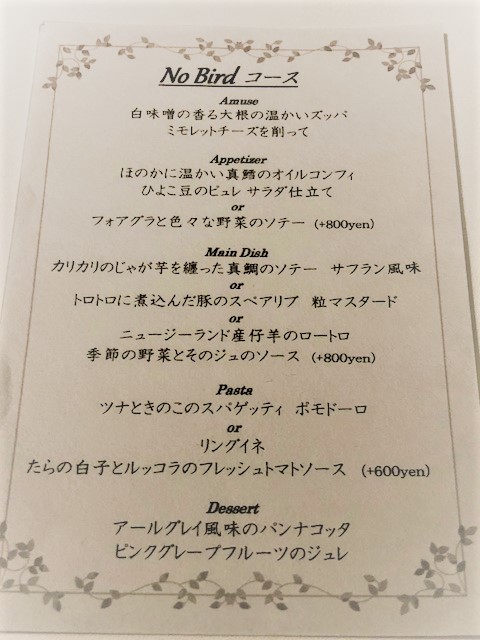 No Bird コース
Amuse
白味噌の香る大根の温かいズッパ
ミモレットチーズを削って
Appetizer
ほのかに温かい真鱈のオイルコンフィ
ひよこ豆のピュレ サラダ仕立て
or
フォアグラと色々な野菜のソテー (+800yen)
Main Dish
カリカリのじゃが芋を纏った真鯛のソテー サフラン風味
or
トロトロに煮込んだ豚のスペアリブ 粒マスタード
or
ニュージーランド産仔羊のロートロ
季節の野菜とそのジュのソース (+800yen)
Pasta
ツナときのこのスパゲッティ ポモドーロ
or
リングイネ
たらの白子とルッコラのフレッシュトマトソース (+600yen)
Dessert
アールグレイ風味のパンナコッタ
ピンクグレープフルーツのジュレ